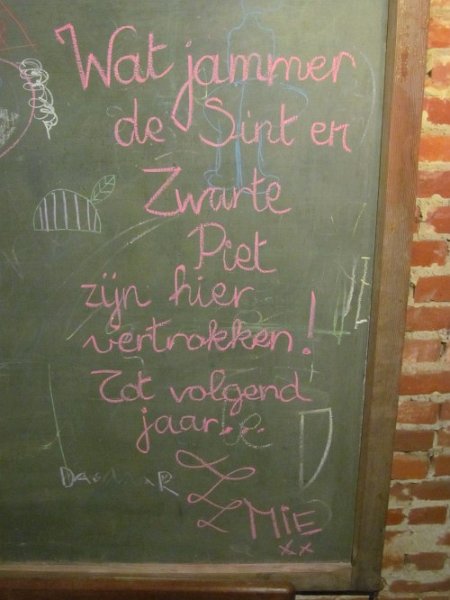 Wat jammer
de Sint en
Zwarte
Piet
zijn hier
vertrokken!
Tot volgend
jaar...
MiE
xx